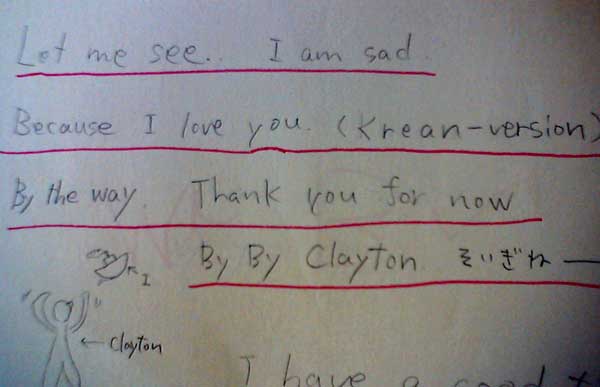 Let me see.. I am sad.
Because I love you. (Krean-version)
By the way. Thank you for now
By By Clayton. そいぎね —
I
← Clayton
I have a good